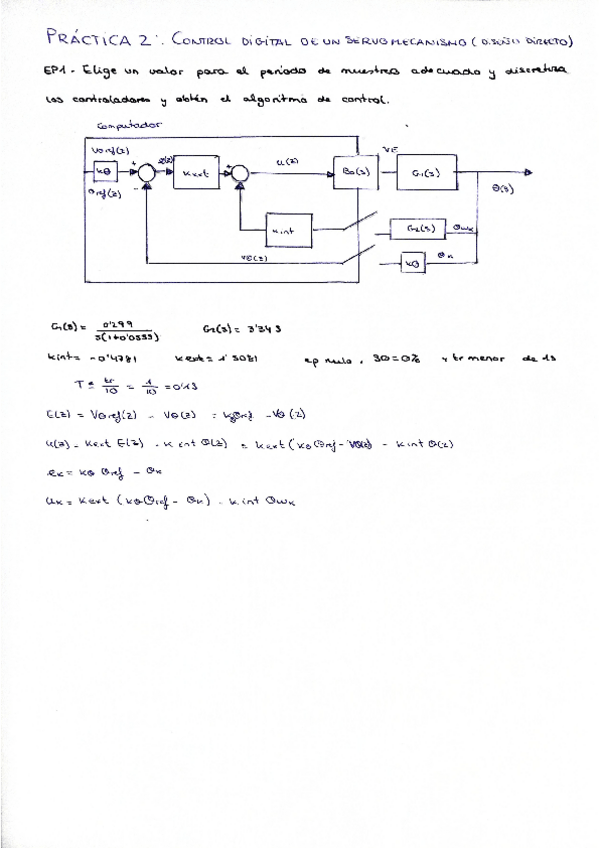 PRÁCTICA 2: CONTROL DIGITAL DE UN SERVOMECANISMO (DISEÑO DIRECTO)
EP1. Elige un valor para el periodo de muestreo adecuado y discretiza
los controladores y obtén el algoritmo de control.
Computador
Vθref(z)
kθ
θref(z)
+
-
E(z)
Kext
+
U(z)
B0(s)
VE
G1(s)
θ(s)
Kint
G2(s)
θωk
Vθ(z)
kθ
θk
G1(s) = 0'299 / s(1+0'0555)
G2(s) = 3'343
Kint = -0'4781 Kext = 1'3081 ep nulo, SO=0% y tr menor de 1s
T ≤ tr/10 = 1/10 = 0'1s
E(z) = Vθref(z) - Vθ(z) = kθθref - Vθ(z)
U(z) = Kext E(z) - Kint θ(z) = Kext (kθ θref - Vθ(z)) - Kint θ(z)
ek = kθ θref - θk
uk = Kext (kθ θref - θk) - Kint θωk